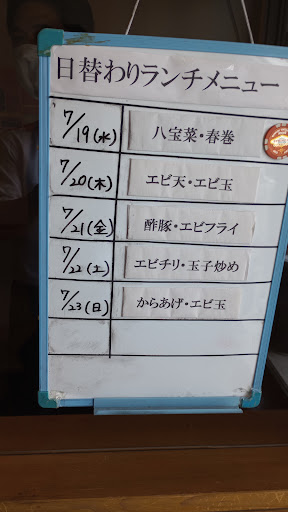 日替わりランチメニュー
7/19(水) 八宝菜・春巻
7/20(木) エビ天・エビ玉
7/21(金) 酢豚・エビフライ
7/22(土) エビチリ・玉子炒め
7/23(日) からあげ・エビ玉